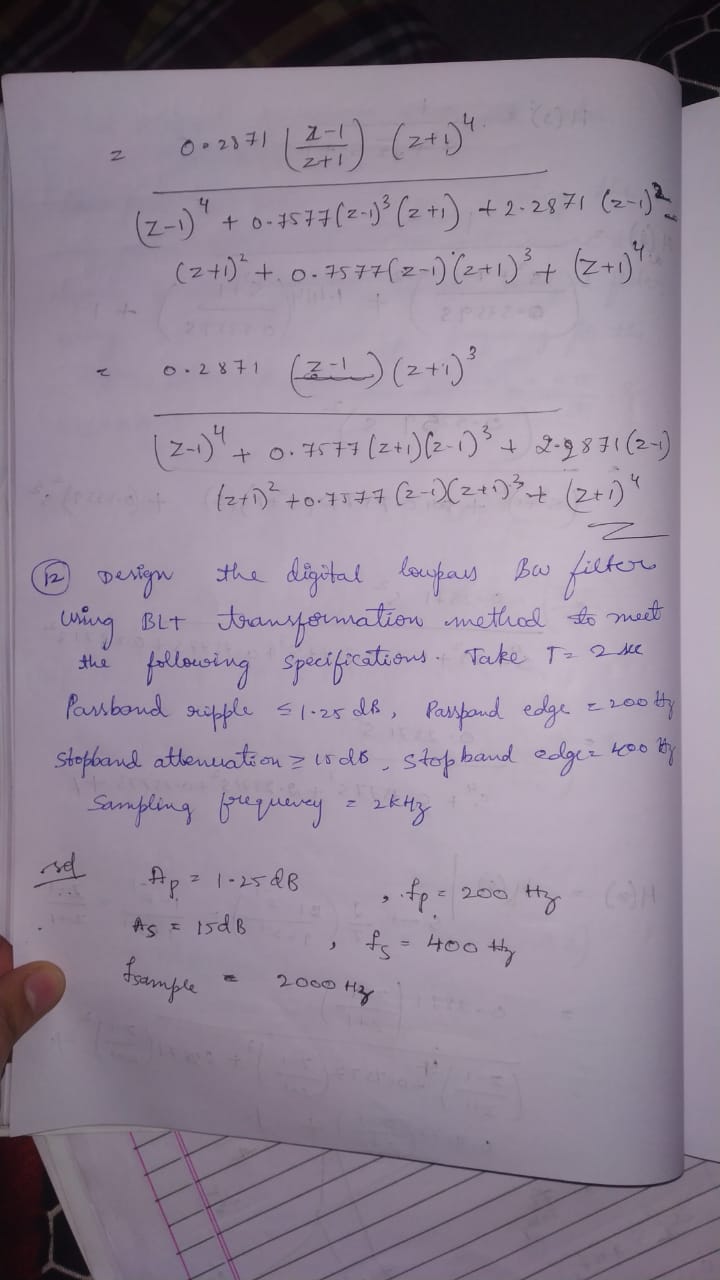 = 0.2871 ((z-1)/(z+1)) (z+1)^4
(z-1)^4 + 0.7577(z-1)^3 (z+1) + 2.2871 (z-1)^2
(z+1)^2 + 0.7577(z-1)(z+1)^3 + (z+1)^4
= 0.2871 (z-1) (z+1)^3
(z-1)^4 + 0.7577 (z+1)(z-1)^3 + 2.2871 (z-1)
(z+1)^2 + 0.7577 (z-1)(z+1)^3 + (z+1)^4
(12) Design the digital lowpass BW filter
using BLT transformation method to meet
the following specifications. Take T = 2 sec
Passband ripple ≤ 1.25 dB, Passpand edge = 200 Hz
Stopband attenuation ≥ 15 dB, stopband edge = 400 Hz
Sampling frequency = 2kHz
sol Ap = 1.25 dB , fp = 200 Hz
As = 15dB , fs = 400 Hz
fsample = 2000 Hz